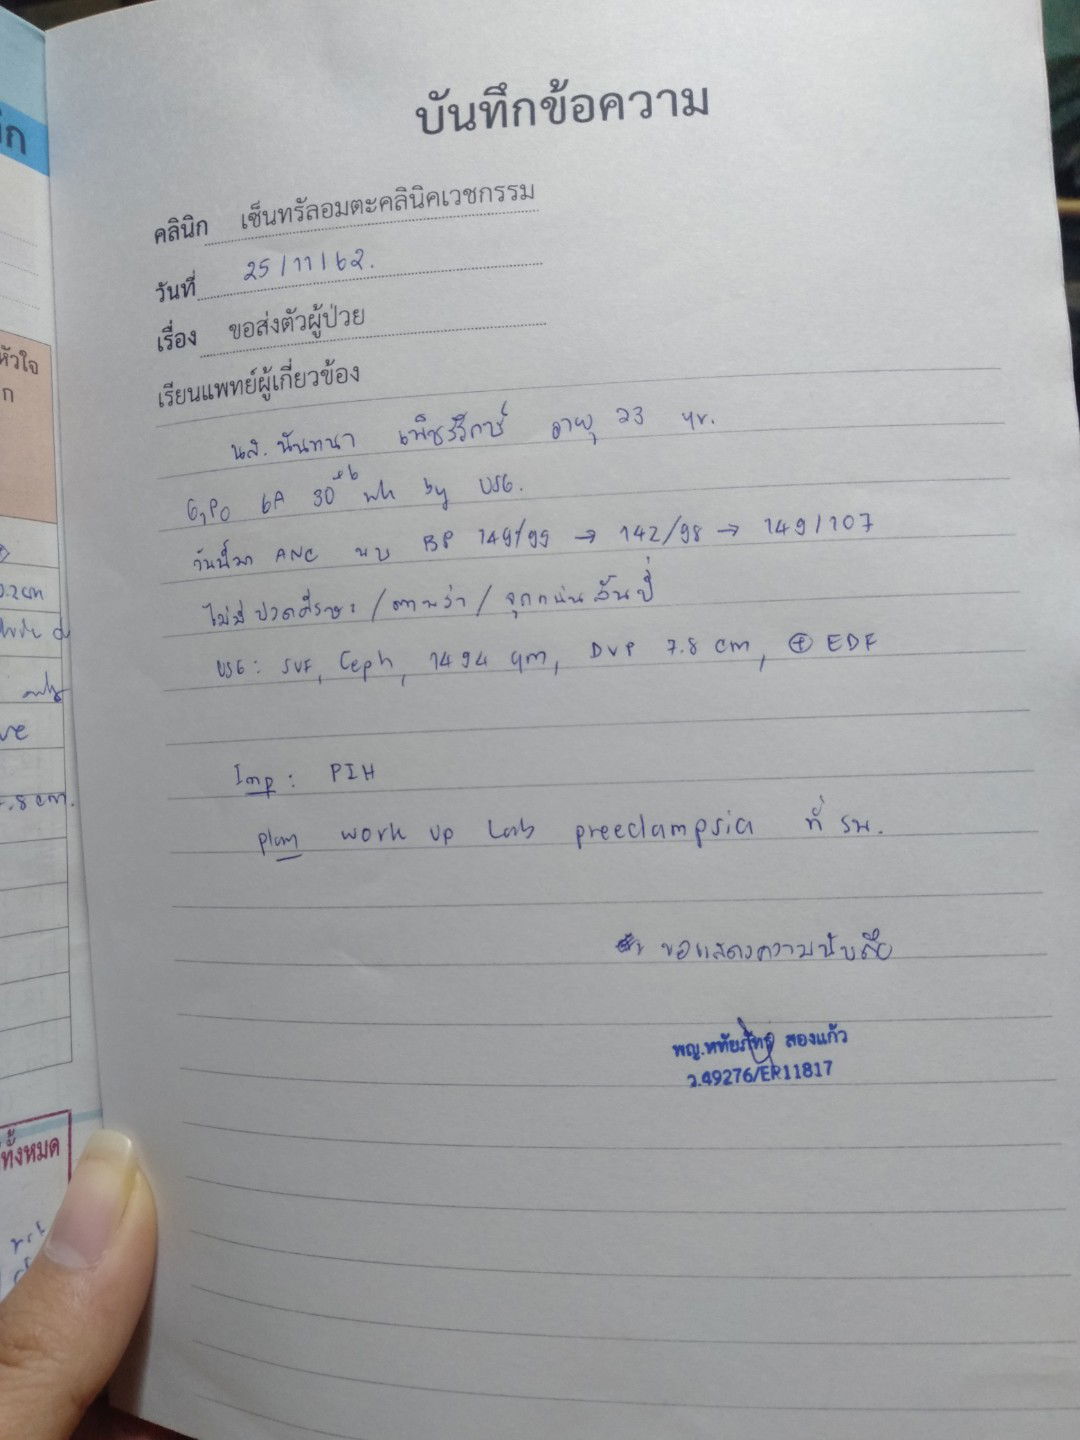 บันทึกข้อความ
คลินิก เซ็นทรัลอมตะคลินิคเวชกรรม
วันที่ 25/11/62.
เรื่อง ขอส่งตัวผู้ป่วย
เรียนแพทย์ผู้เกี่ยวข้อง
นส. นันทนา อายุ 23 yr.
G1P0 GA 30+6 wk by USG.
วันนี้มา ANC พบ BP 149/99 → 142/98 → 149/107
ไม่มีปวดศีรษะ / ตาพร่า / จุกแน่นลิ้นปี่
USG: SVF, Ceph, 1494 gm, DVP 7.8 cm, ⊕ EDF
Imp: PIH
plan work up Lab preeclampsia ที่ รพ.
ขอแสดงความนับถือ
พญ. สองแก้ว
ว.49276/ER11817
ึก
หัวใจ
ก
0.2cm
only
ve
7.8 cm.
ทั้งหมด